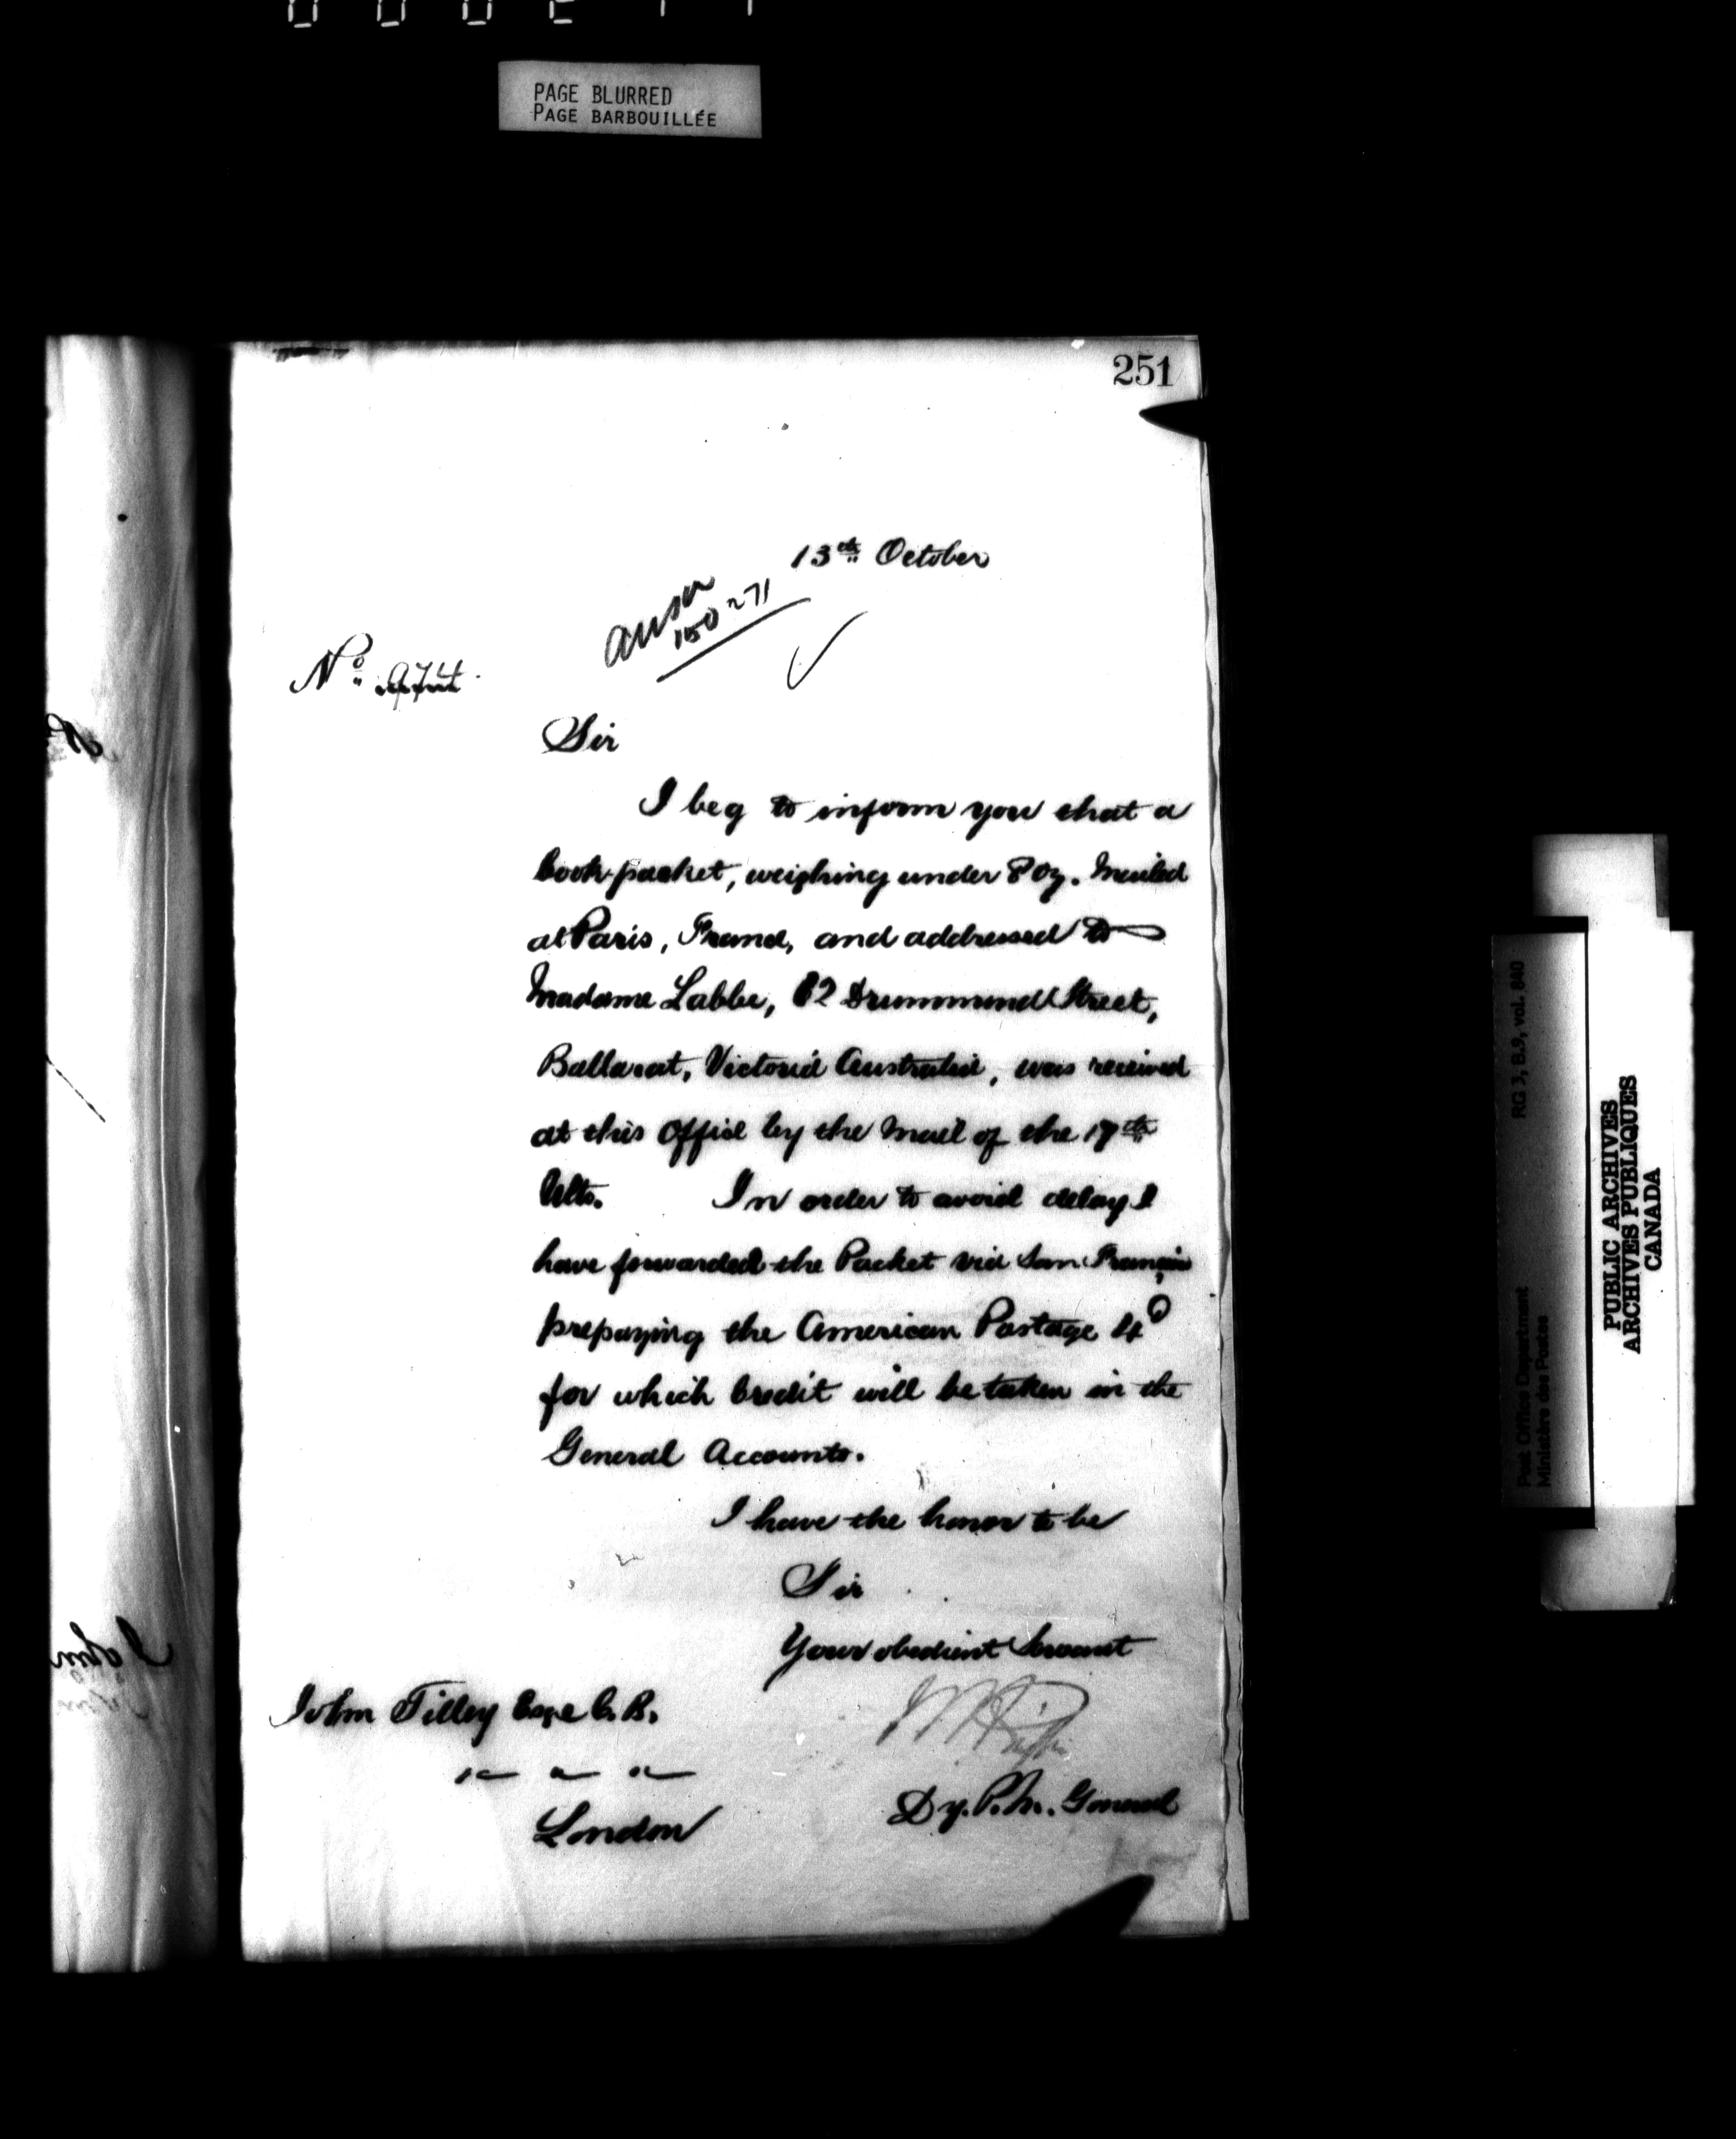 PAGE BLURRED
PAGE BARBOUILLÉE
251
13th October
answ
150-271
No. 974.
Sir
I beg to inform you that a
book-packet, weighing under 8 oz. Mailed
at Paris, France, and addressed to
Madame Labbe, 82 Drummond Street,
Ballarat, Victoria Australia, was received
at this Office by the Mail of the 17th
Ulto. In order to avoid delay I
have forwarded the Packet via San Francisco
prepaying the American Postage 4
for which Credit will be taken in the
General Accounts.
I have the honor to be
Sir
Your obedient Servant
John Tilley Esqe C. B.
London
Dy. P. M. General
RG 3, B.9, vol. 840
Post Office Department
Ministère des Postes
PUBLIC ARCHIVES
ARCHIVES PUBLIQUES
CANADA